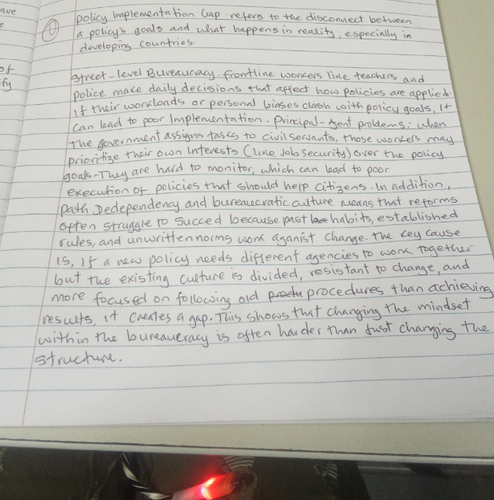 ave
e
of
fy
① policy Implementation Gap refers to the disconnect between
a policy's goals and what happens in reality, especially in
developing countries.
Street-level Bureaucracy. Frontline workers like teachers and
police make daily decisions that affect how policies are applied.
If their workloads or personal biases clash with policy goals, It
can lead to poor Implementation. Principal-Agent problems: when
the government assigns tasks to civil servants, those workers may
prioritize their own Interests (like job security) over the policy
goals. They are hard to monitor, which can lead to poor
execution of policies that should help citizens. In addition,
Path Dedependency and bureaucratic culture means that reforms
often struggle to succed because past habits, established
rules, and unwritten norms work aganist change. The key cause
is, If a new policy needs different agencies to work together
but the existing culture is divided, resistant to change, and
more focused on following old procedures than achieving
results, it creates a gap. This shows that changing the mindset
within the bureaueracy is often harder than just changing the
structure.